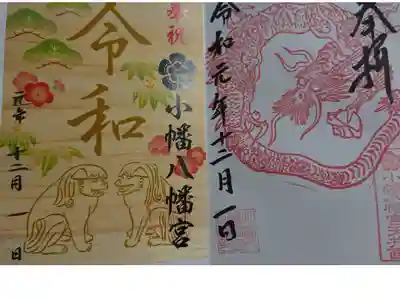 奉祝
令和
小幡八幡宮
元年 十二月 一日
奉拝
令和元年十二月一日